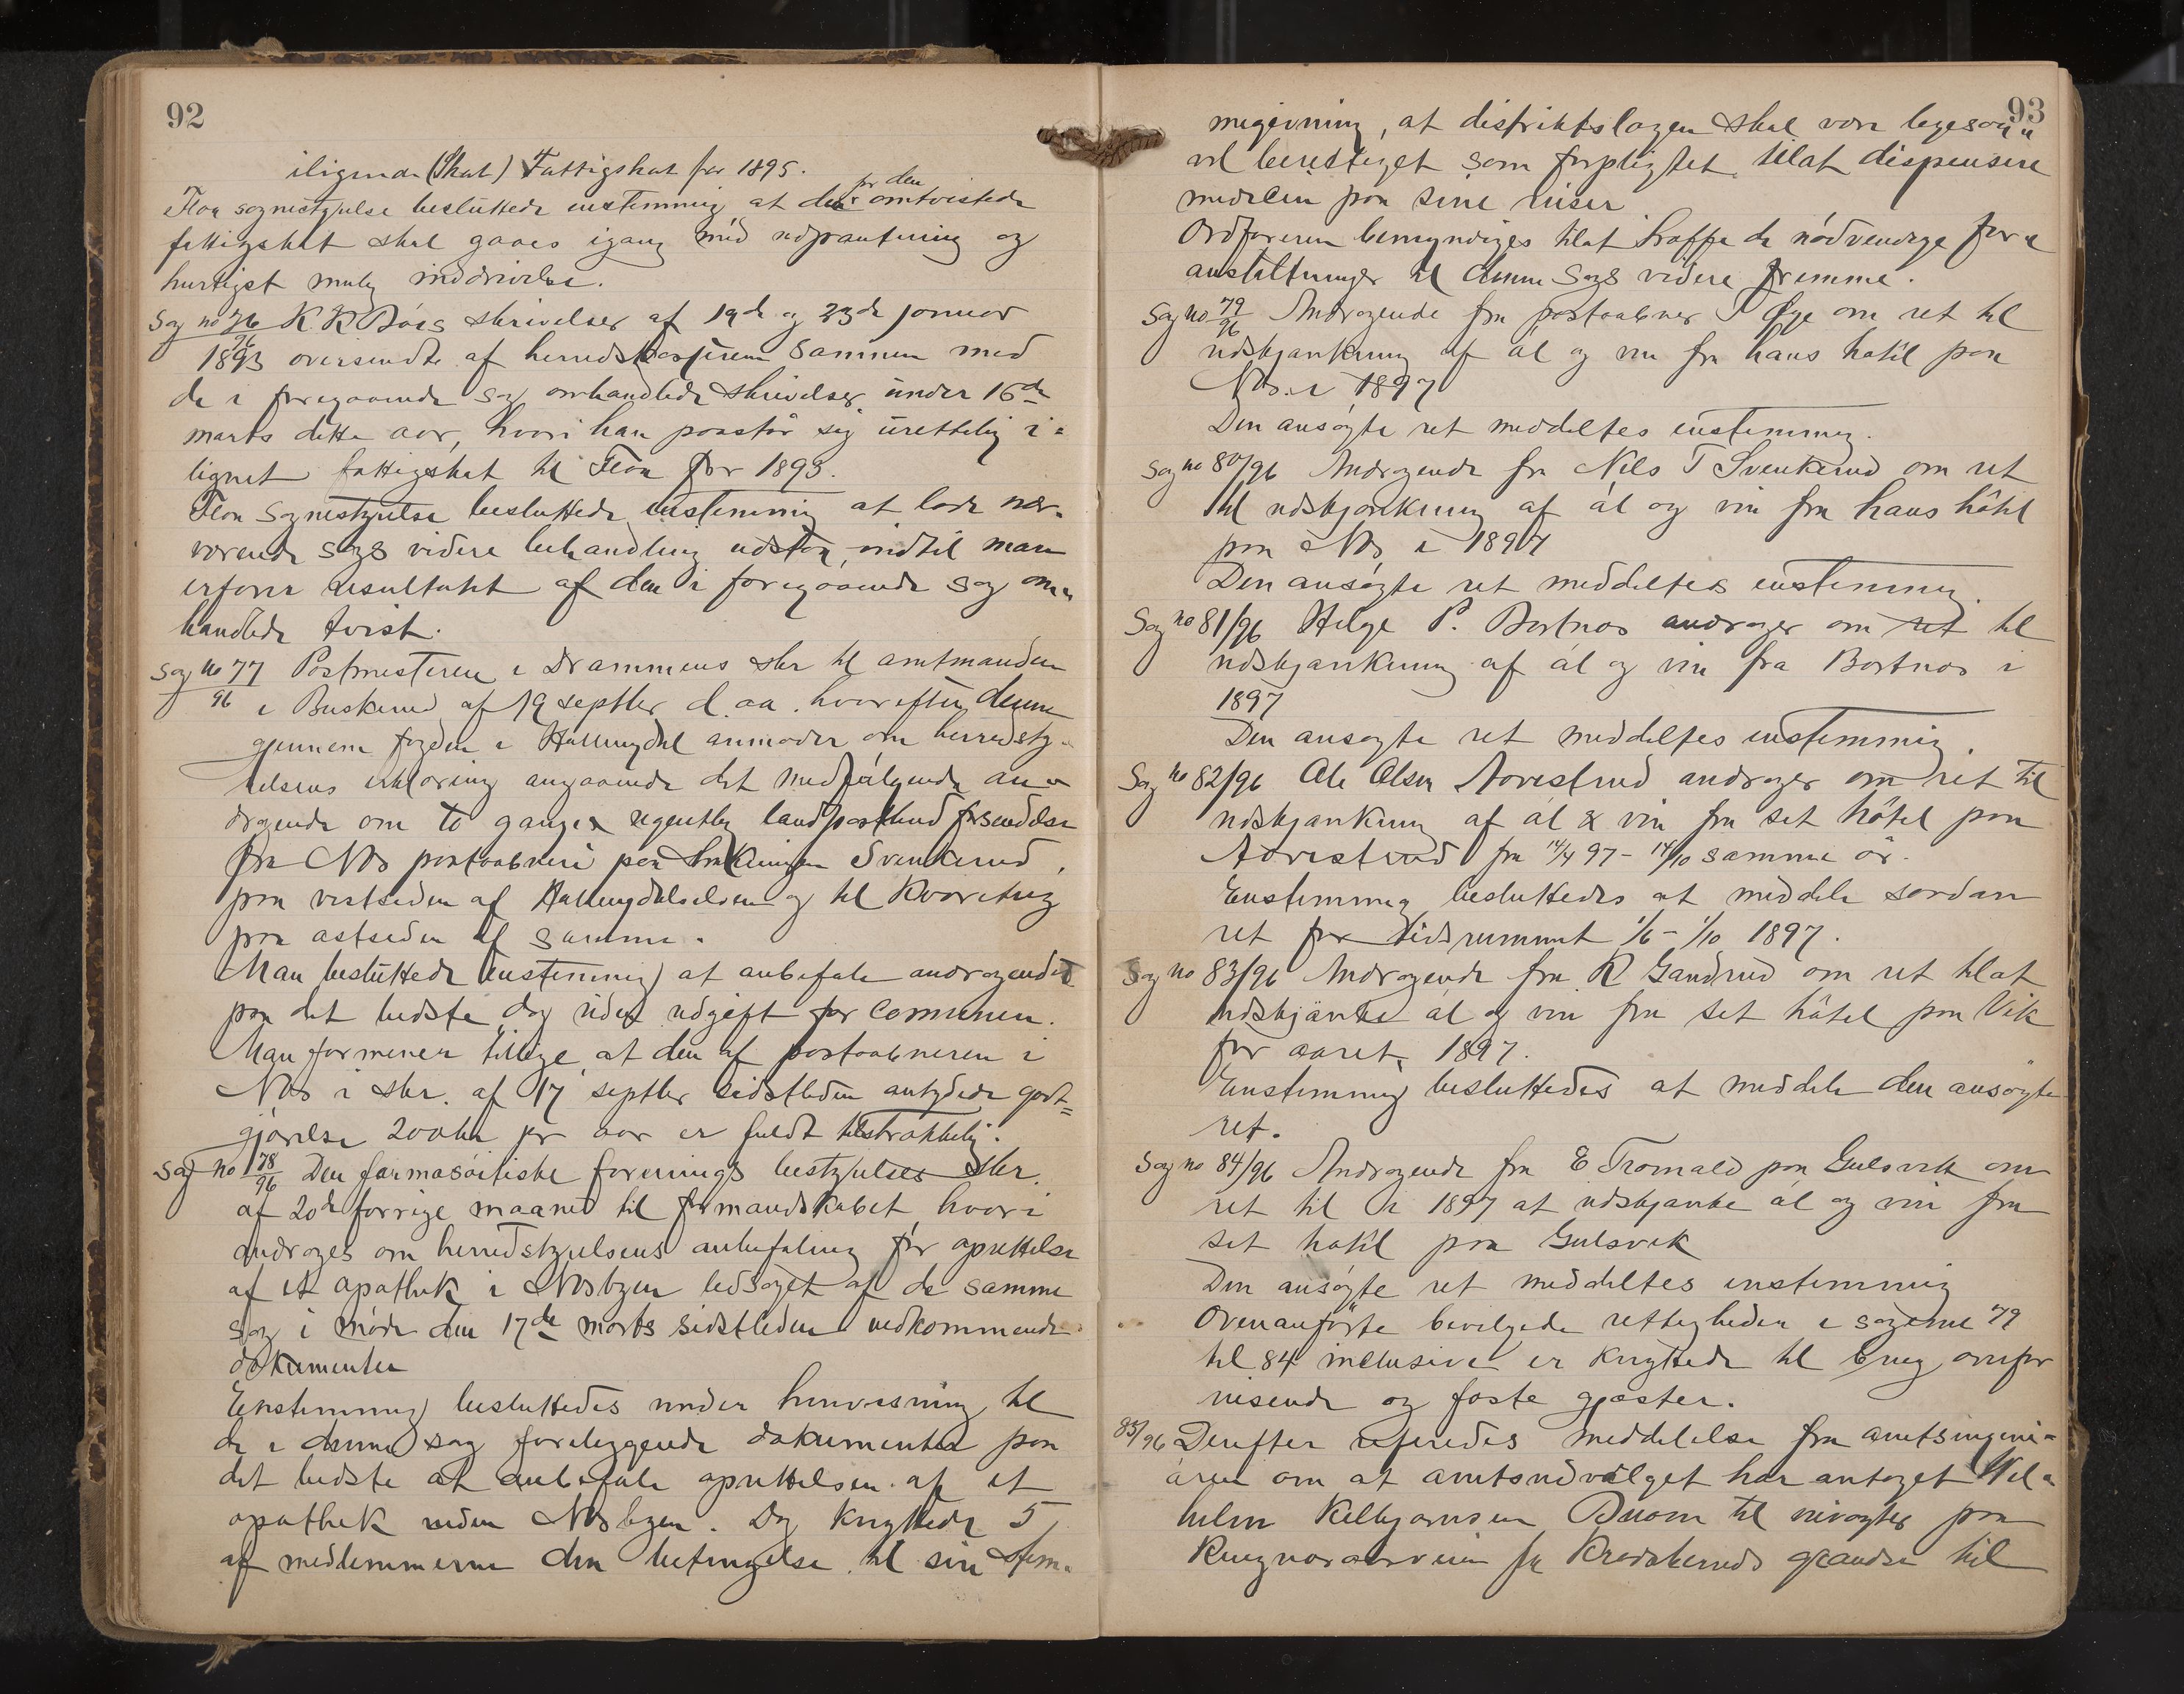 92
ilignede (Skat) Fattigskat for 1895.
Flaa sognestyrelse besluttede enstemmig at der for den omtvistede
fattigskat skal gaaes igang med udpantning og
hurtigst mulig inddrivelse.
Sag no 76/96 K. K. Bøes skrivelser af 19de og 23de januar
1893 oversendte af herredskassereren sammen med
de i foregaaende sag omhandlede skrivelser under 16de
marts dette aar, hvori han paastår sig urettelig i=
lignet fattigskat til Flaa for 1893.
Flaa sognestyrelse besluttede enstemmig at lade nær-
værende sags videre behandling udstaa, indtil man
erfarer resultatet af den i foregaaende sag om=
handlede tvist.
Sag no 77/96 Postmesteren i Drammens skr til amtmanden
i Buskerud af 19 septbr d. aa. hvorefter denne
gjennem fogden i Hallingdal anmoder om herredsty-
relsens erklæring angaaende det medfølgende an-
dragende om to ganger ugentlig landpostbud forsendelse
fra Næs postaabneri paa strækningen Svenkerud,
paa vestsiden af Hallingdalselven og til
paa østsiden af samme.
Man besluttede enstemmig at anbefale andragendet
paa det bedste dog uden udgift for Communen.
Man formener tillige at den af postaabneren i
Næs i skr. af 17 septbr sidstleden antydede godt=
gjørelse 200 kr pr aar er fuldt tilstrækkelig.
Sag no 78/96 Den farmasøitiske forenings bestyrelses skr.
af 20de forrige maaned til formandskabet, hvori
androges om herredstyrelsens anbefaling for oprettelse
af et apothek i Næsbyen ledsaget af de samme
sag i møde den 17de marts sidstleden vedkommende
dokumenter
Enstemmig besluttedes under henvisning til
de i denne sag foreliggende dokumenter paa
det bedste at anbefale oprettelsen af et
apothek inden Næsbyen. Dog knyttede 5
af medlemmerne den betingelse til sin stem-
93
megivning, at distriktslægen skal være ligesaa
vel berettiget som forpligtet tilat dispensere
medicin paa sine reiser
Ordføreren bemyndiges tilat træffe de nødvendige for=
anstaltninger til denne sags videre fremme.
Sag no 79/96 Andragende fra postaabner T Øye om ret til
udskjænkning af øl og vin fra hans hotel paa
Næs i 1897
Den ansøgte ret meddeltes enstemmig.
Sag no 80/96 Andragende fra Nils T Svenkerud om ret
til udskjænkning af øl og vin fra hans hôtel
paa Næs i 1897
Den ansøgte ret meddeltes enstemmig.
Sag no 81/96 Helge P. Bortnæs androger om ret til
udskjænkning af øl og vin fra Bortnæs i
1897
Den ansøgte ret meddeltes enstemmig.
Sag no 82/96 Ole Olsen Aavestrud androger om ret til
udskjænkning af øl & vin fra sit hôtel paa
Aavestrud fra 14/4 97 - 14/10 samme år.
Enstemmig besluttedes at meddele saadan
ret for tidsrummet 1/6 - 1/10 1897.
Sag no 83/96 Andragende fra R Gandrud om ret tilat
udskjænke øl og vin fra sit hôtel paa Vik
for aaret 1897.
Enstemmig besluttedes at meddele den ansøgte
ret.
Sag no 84/96 Andragende fra E Tromald paa Gulsvik om
ret til i 1897 at udskjænke øl og vin fra
sit hotel paa Gulsvik
Den ansøgte ret meddeltes enstemmig
Ovenanførte bevilgede rettigheder i sagerne 79
til 84 inclusive er knyttede til brug ovenfor
reisende og faste gjæster.
85/96 Derefter refereredes meddelelse fra amtsingeni=
øren om at amtsudvalget har antaget Wil=
helm Kolbjørnsen Braom til veivogter paa
fra Krødsherreds grændse til